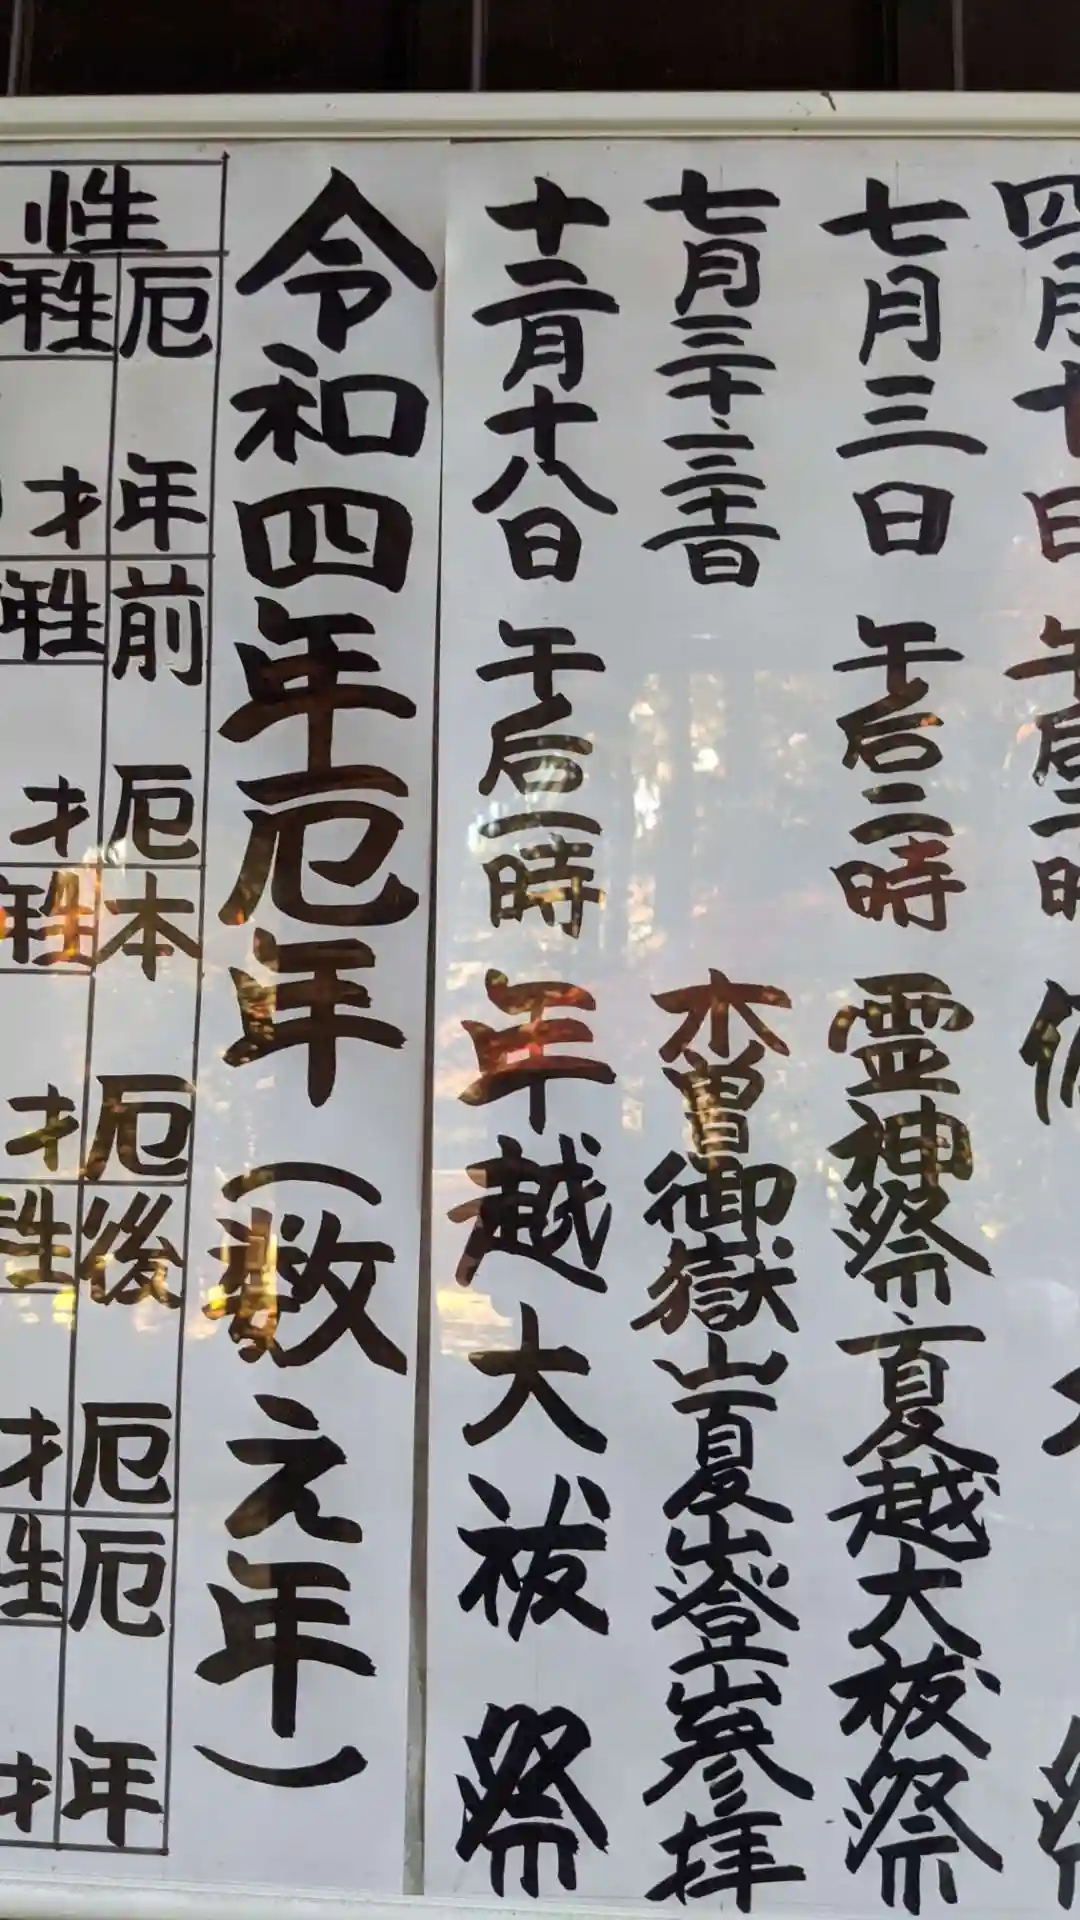 四月十日 午后二時
七月三日 午后二時 霊神祭夏越大祓祭
七月三十、三十一日 木曽御嶽山夏山登山参拝
十二月十八日 午后一時 年越大祓祭
令和四年厄年(数え年)
厄年
前厄
本厄
後厄
厄年
性
年生
才
年生
才
年生
才
生
才
生
才